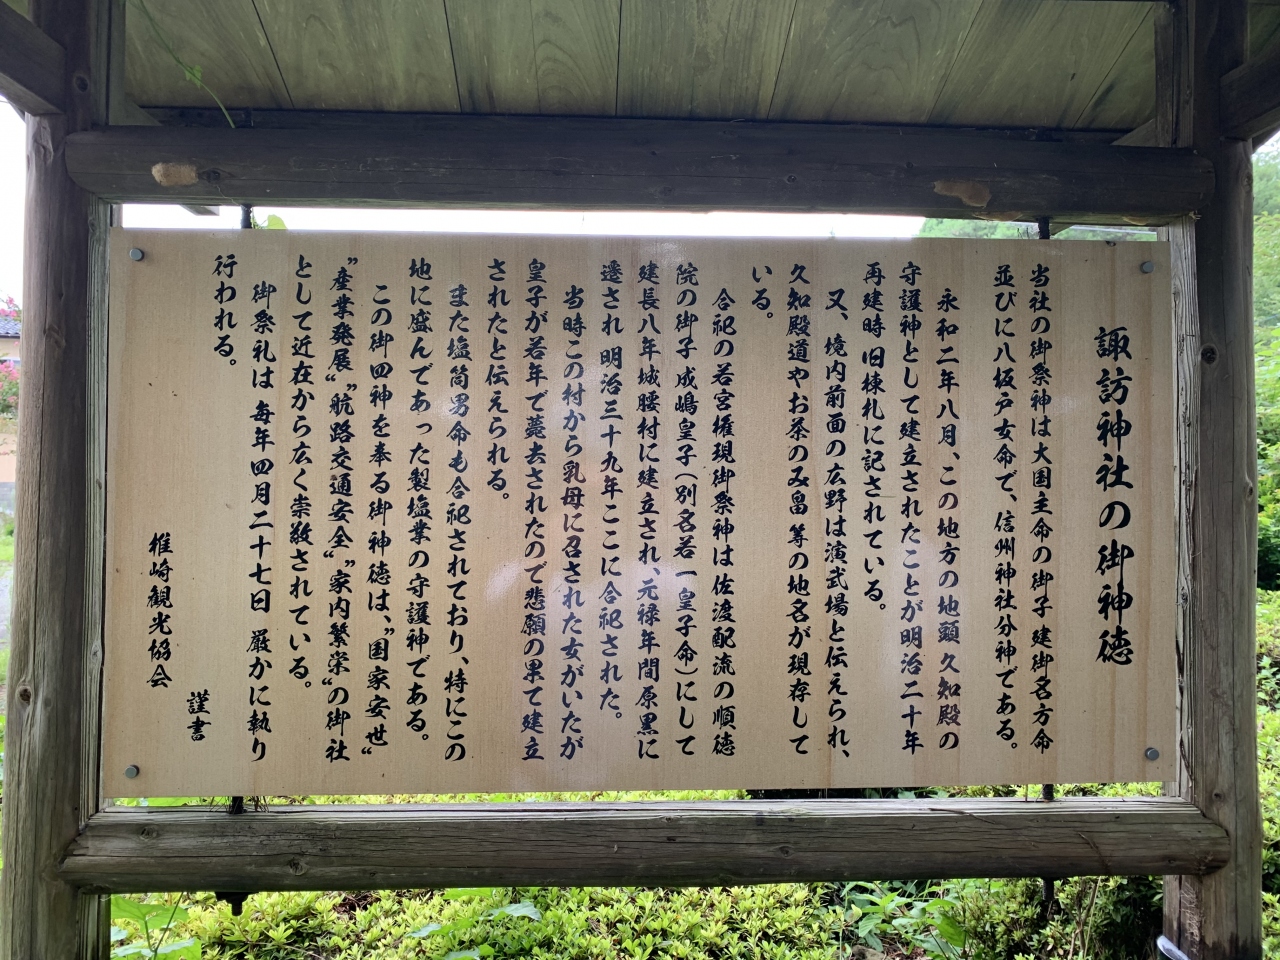 諏訪神社の御神徳
当社の御祭神は大国主命の御子 建御名方命
並びに八坂戸女命で、信州神社分神である。
永和二年八月、この地方の地頭 久知殿の
守護神として建立されたことが明治二十年
再建時 旧棟札に記されている。
又、境内前面の広野は演武場と伝えられ、
久知殿道やお茶のみ畠 等の地名が現存して
いる。
合祀の若宮権現御祭神は佐渡配流の順徳
院の御子 成嶋皇子(別名若一皇子命)にして
建長八年城腰村に建立され、元禄年間原黒に
遷され 明治三十九年ここに合祀された。
当時この村から乳母に召された女がいたが
皇子が若年で薨去されたので悲願の果て建立
されたと伝えられる。
また塩筒男命も合祀されており、特にこの
地に盛んであった製塩業の守護神である。
この御四神を奉る御神徳は、〝国家安世〟
〝産業発展〟〝航路交通安全〟〝家内繁栄〟の御社
として近在から広く崇敬されている。
御祭礼は 毎年四月二十七日 厳かに執り
行われる。
謹書
椎崎観光協会